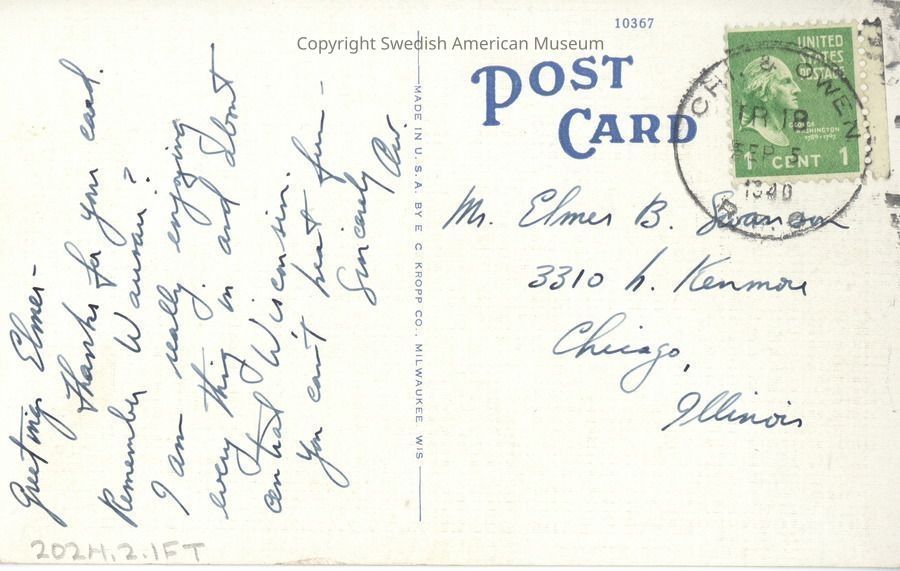 Copyright Swedish American Museum
10367
POST
CARD
UNITED
STATES
POSTAGE
GEORGE
WASHINGTON
1789-1797
1 CENT 1
CHI. & OWEN
TR 19
SEP 5
1940
R.P.O.
Mr. Elmer B. Swanson
3310 N. Kenmore
Chicago,
Illinois
MADE IN U. S. A. BY E. C. KROPP CO., MILWAUKEE, WIS
Greetings Elmer-
Thanks for your card.
Remember Wausau?
I am really enjoying
every thing in and about
central Wisconsin.
You can't beat fun-
Sincerely
2024.2.1FT